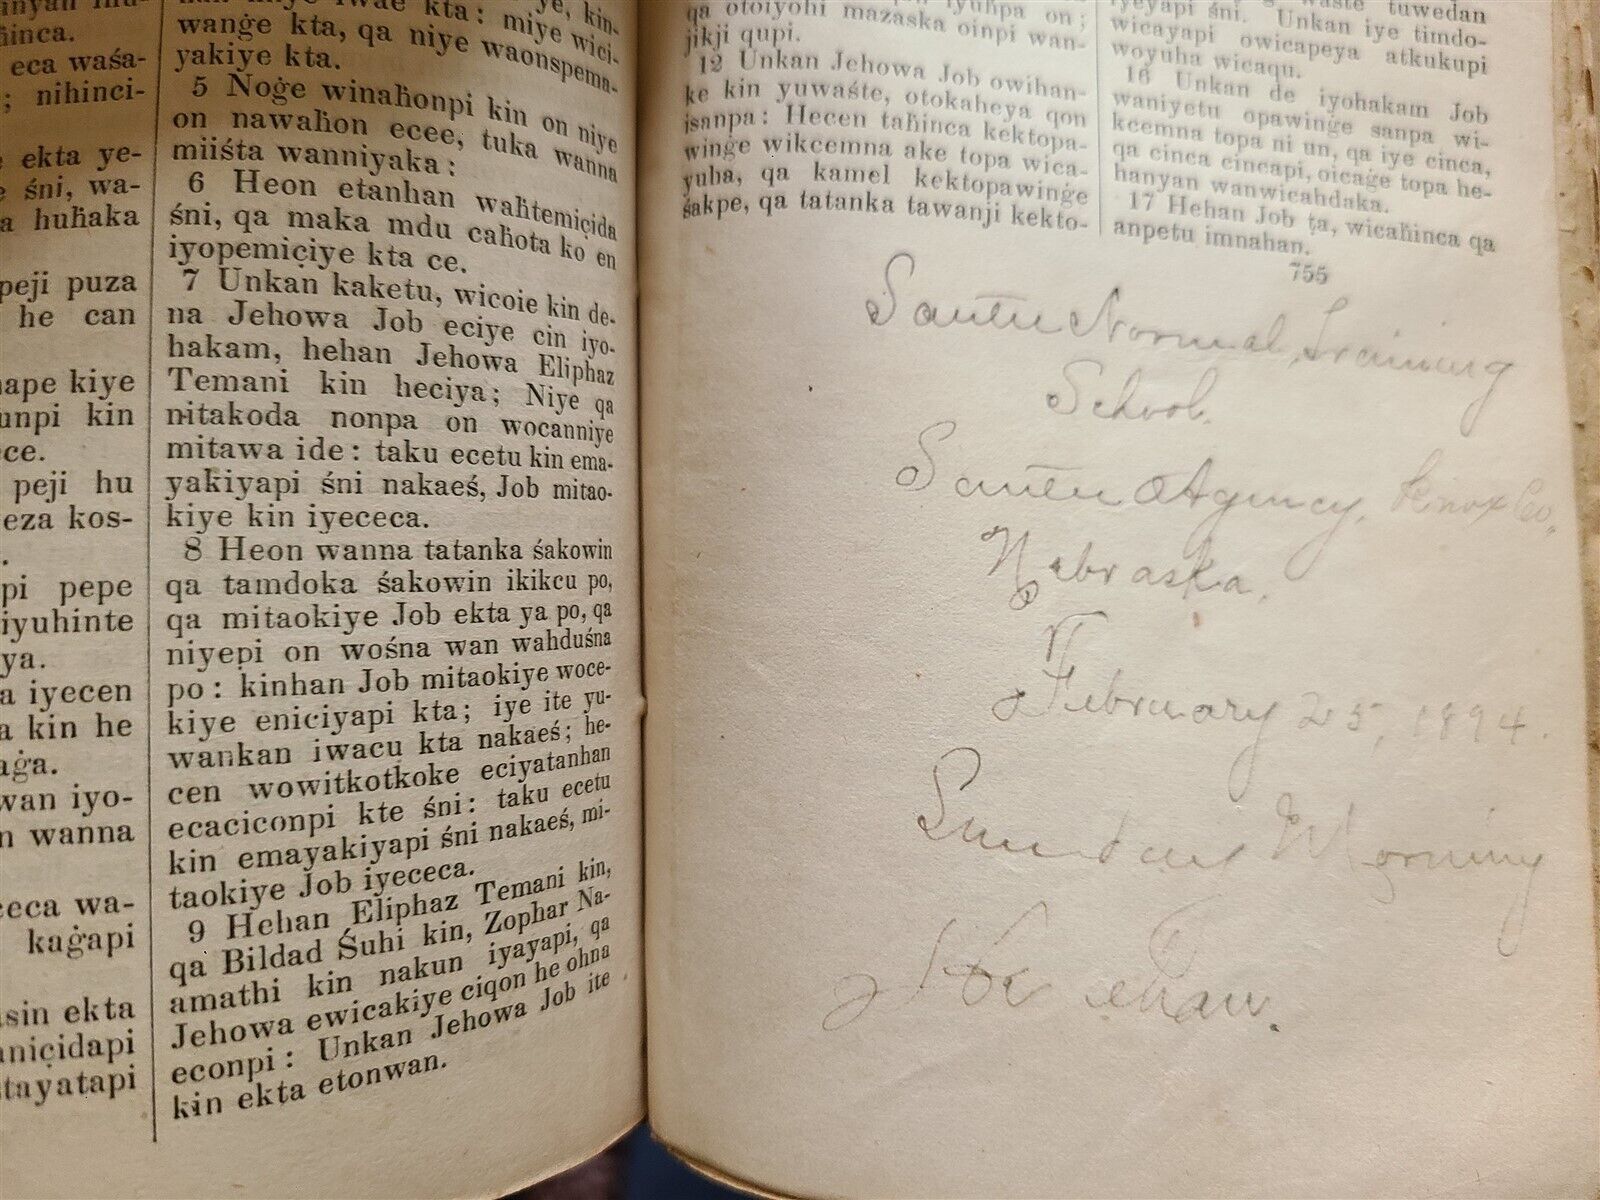 ninca.
eca waśa-
; nihinci-
ekta ye-
śni, wa-
a huḣaka
peji puza
he can
ape kiye
unpi kin
ce.
peji hu
eza kos-
pi pepe
iyuhinte
ya.
a iyecen
a kin he
aġa.
wan iyo-
n wanna
ceca wa-
kaġapi
sin ekta
aniçidapi
tayatapi
kta: miye wici-
wanġe kta, qa niye waonspema-
yakiye kta.
5 Noġe winaḣonpi kin on niye
on nawaḣon ecee, tuka wanna
miiśta wanniyaka:
6 Heon etanhan waḣtemiçida
śni, qa maka mdu caḣota ko en
iyopemiçiye kta ce.
7 Unkan kaketu, wicoie kin de-
na Jehowa Job eciye cin iyo-
hakam, hehan Jehowa Eliphaz
Temani kin heciya; Niye qa
nitakoda nonpa on wocanniye
mitawa ide: taku ecetu kin ema-
yakiyapi śni nakaeś, Job mitao-
kiye kin iyececa.
8 Heon wanna tatanka śakowin
qa tamdoka śakowin ikikcu po,
qa mitaokiye Job ekta ya po, qa
niyepi on wośna wan wahduśna
po: kinhan Job mitaokiye woce-
kiye eniciyapi kta; iye ite yu-
wankan iwacu kta nakaeś; he-
cen wowitkotkoke eciyatanhan
ecaciconpi kte śni: taku ecetu
kin emayakiyapi śni nakaeś, mi-
taokiye Job iyececa.
9 Hehan Eliphaz Temani kin,
qa Bildad Śuhi kin, Zophar Na-
amathi kin nakun iyayapi, qa
Jehowa ewicakiye ciqon he ohna
econpi: Unkan Jehowa Job ite
kin ekta etonwan.
qa otoiyohi mazaska oinpi wan-
jikji qupi.
12 Unkan Jehowa Job owihan-
ke kin yuwaśte, otokaheya qon
isanpa: Hecen taḣinca kektopa-
winġe wikcemna ake topa wica-
yuha, qa kamel kektopawinġe
śakpe, qa tatanka tawanji kekto-
tuwedan
iyeyapi śni. Unkan iye timdo-
wicayapi owicapeya atkukupi
woyuha wicaqu.
16 Unkan de iyohakam Job
waniyetu opawinġe sanpa wi-
kcemna topa ni un, qa iye cinca,
qa cinca cincapi, oicaġe topa he-
hanyan wanwicahdaka.
17 Hehan Job ṭa, wicaḣinca qa
anpetu imnahan.
755
Santee Normal Training
School.
Santee Agency, Knox Co.
Nebraska.
February 25, 1894.
Sunday Morning